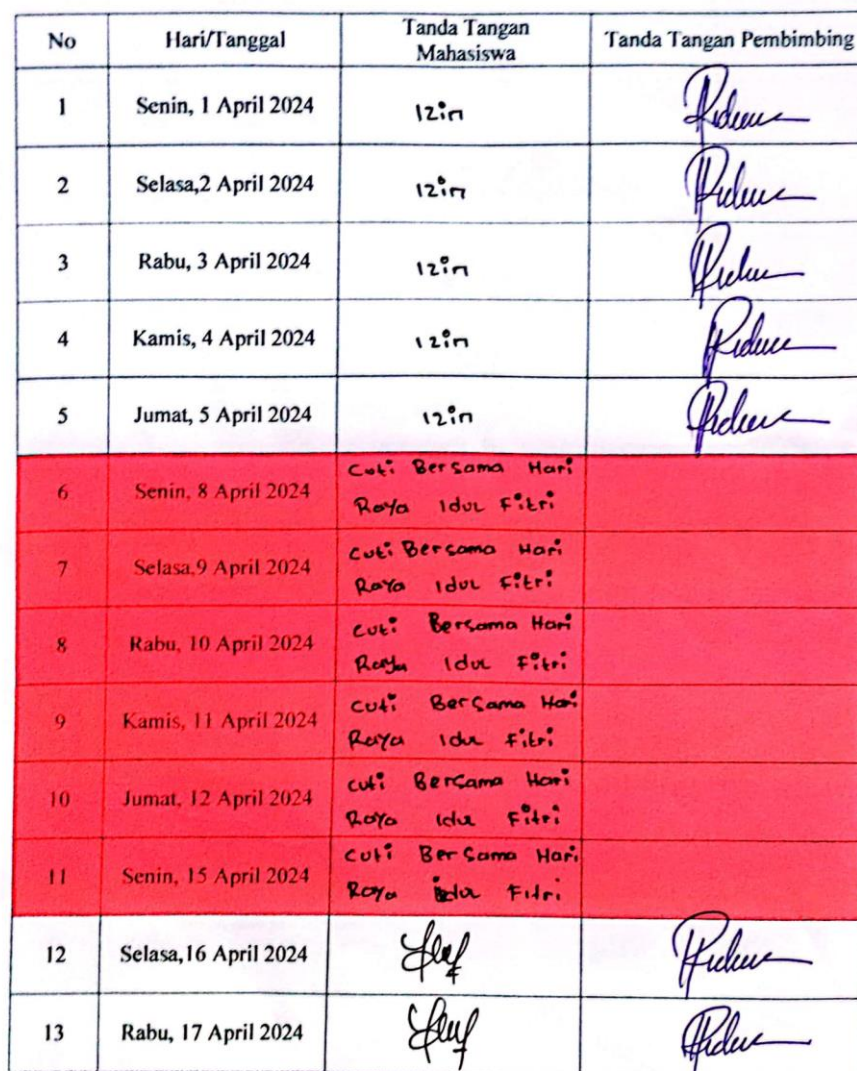 No Hari/Tanggal Tanda Tangan Mahasiswa Tanda Tangan Pembimbing
1 Senin, 1 April 2024 Izin
2 Selasa,2 April 2024 Izin
3 Rabu, 3 April 2024 Izin
4 Kamis, 4 April 2024 Izin
5 Jumat, 5 April 2024 Izin
6 Senin, 8 April 2024 Cuti Bersama Hari
Raya Idul Fitri
7 Selasa,9 April 2024 Cuti Bersama Hari
Raya Idul Fitri
8 Rabu, 10 April 2024 Cuti Bersama Hari
Raya Idul Fitri
9 Kamis, 11 April 2024 Cuti Bersama Hari
Raya Idul Fitri
10 Jumat, 12 April 2024 Cuti Bersama Hari
Raya Idul Fitri
11 Senin, 15 April 2024 Cuti Bersama Hari
Raya Idul Fitri
12 Selasa,16 April 2024
13 Rabu, 17 April 2024